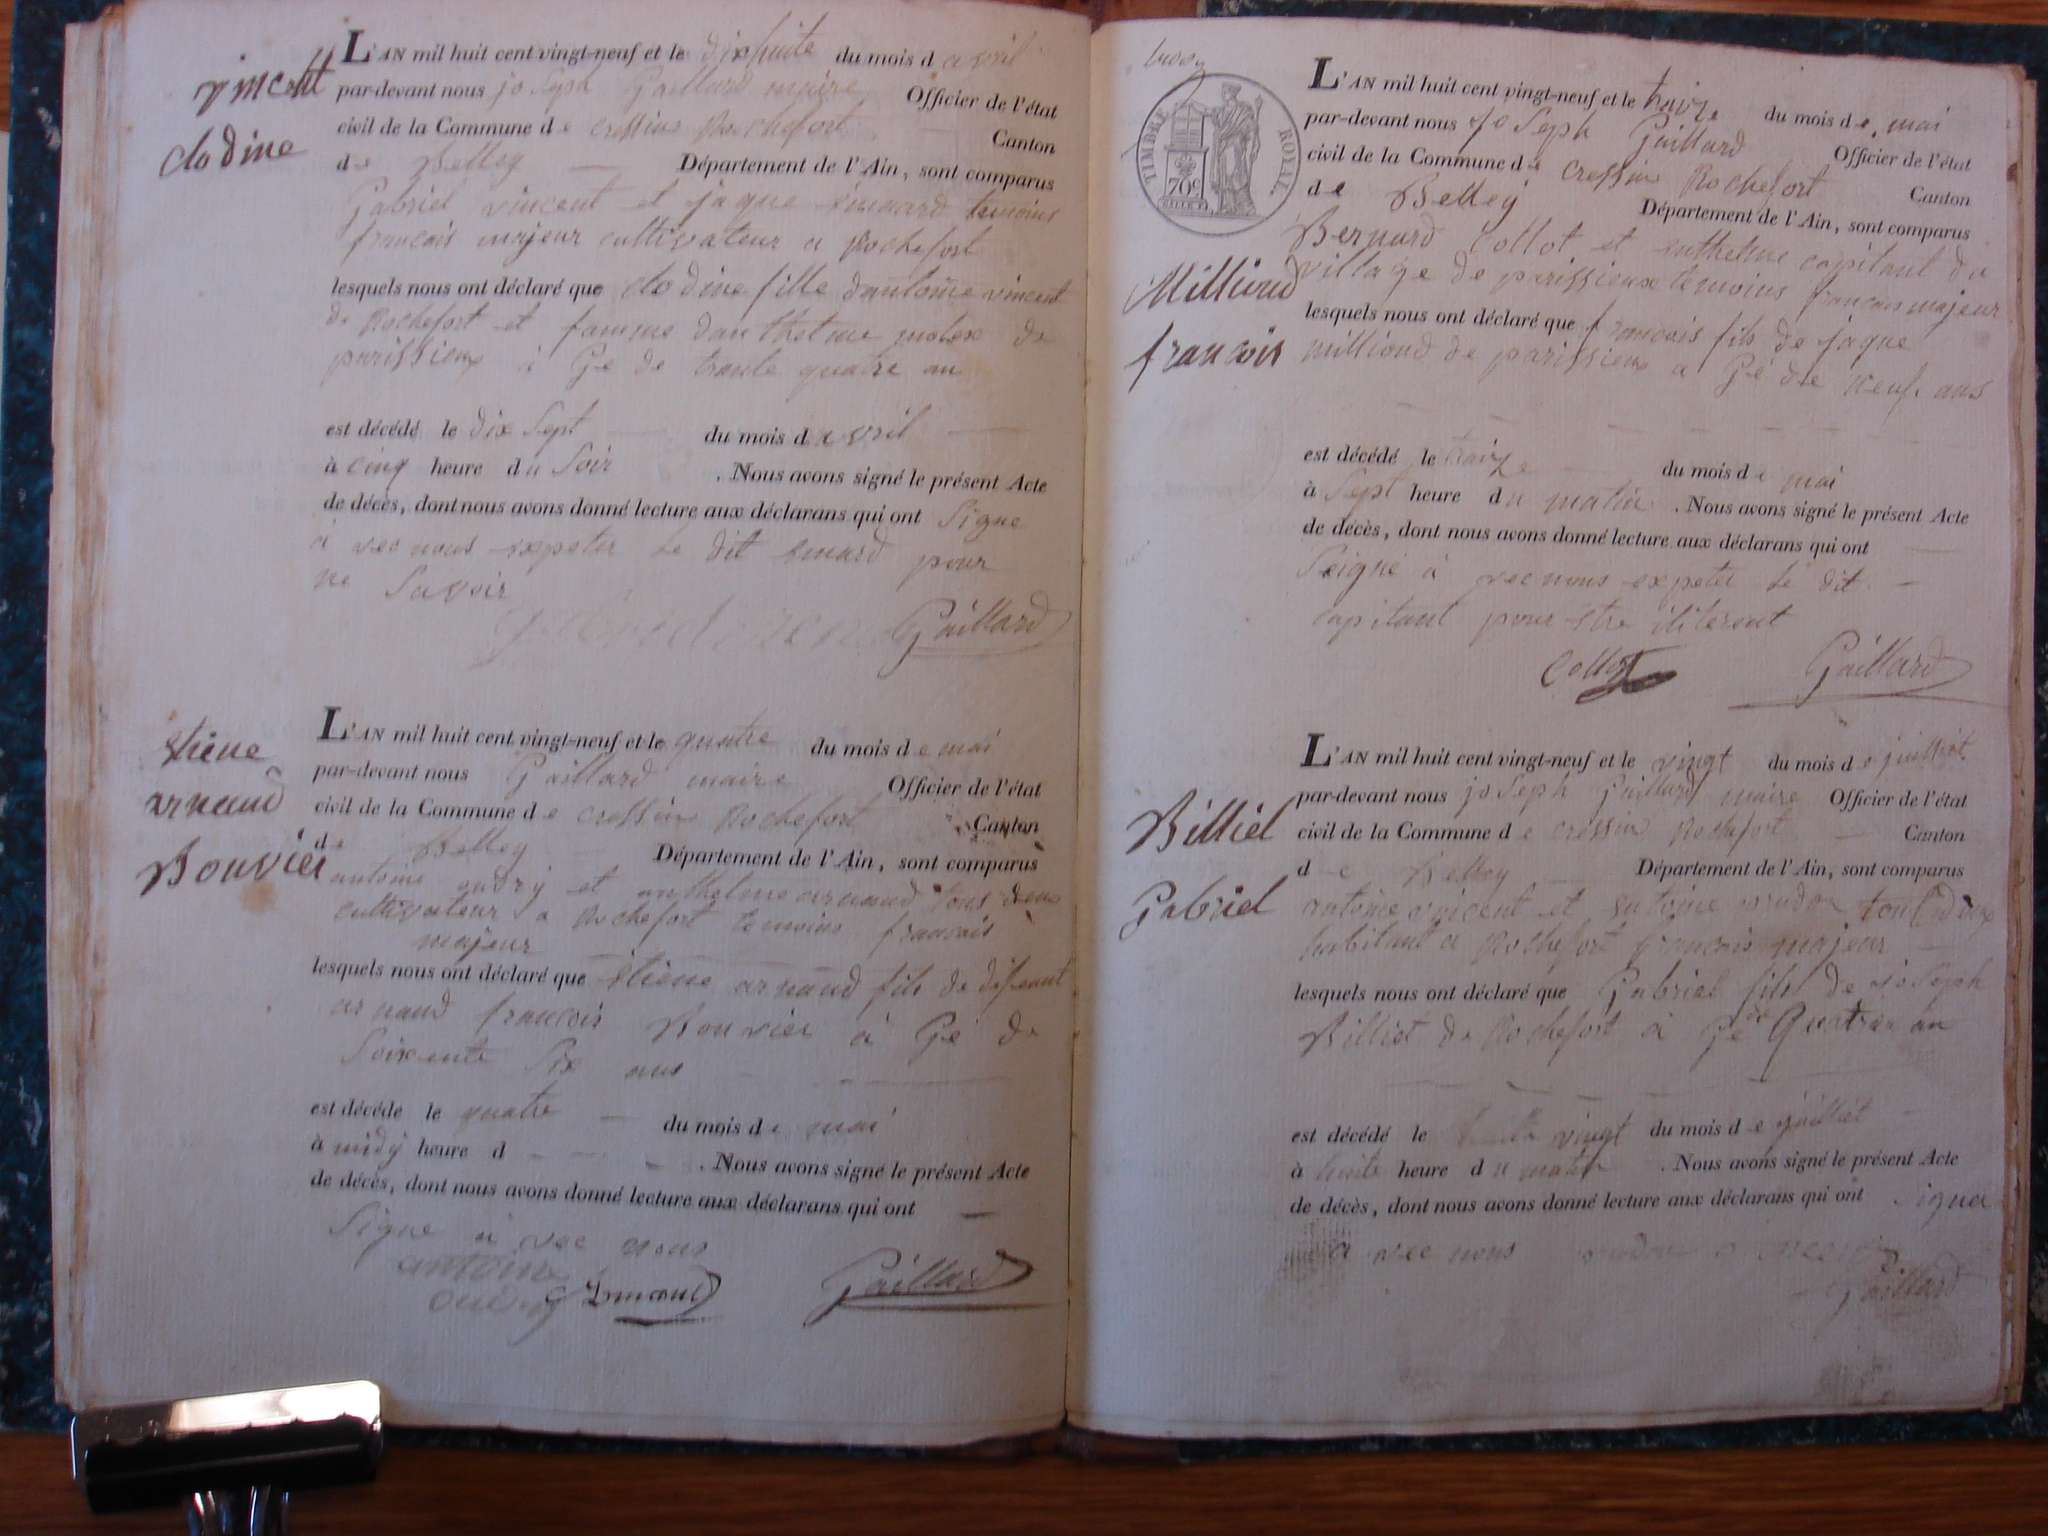 vincent
clodine
L'AN mil huit cent vingt-neuf et le dix huite du mois d avril
par-devant nous joseph Gaillard maire Officier de l'état
civil de la Commune de cressin Rochefort Canton
de Belley Département de l'Ain, sont comparus
Gabriel vincent et jaque témoins
francais majeur cultivateur a Rochefort
lesquels nous ont déclaré que clodine fille dantoine vincent
de Rochefort et famme danthelme de
parissieux à Gé de trante quatre an
est décédé le dix Sept du mois d avril
à cinq heure du Soir . Nous avons signé le présent Acte
de décès, dont nous avons donné lecture aux déclarans qui ont Signe
a vec nous expeter le dit pour
ne Savoir
Gaillard
etiene
arnaud
Bouvier
L'AN mil huit cent vingt-neuf et le quatre du mois de mai
par-devant nous Gaillard maire Officier de l'état
civil de la Commune de cressin Rochefort Canton
de Belley Département de l'Ain, sont comparus
antoine et anthelme arnaud tous deux
cultivateur a Rochefort temoins francais
majeur
lesquels nous ont déclaré que etiene arnaud fils de defeunt
arnaud francois Bouvier à Gé de
Soixente Six ans
est décédé le quatre du mois de mai
à midy heure d . Nous avons signé le présent Acte
de décès, dont nous avons donné lecture aux déclarans qui ont
Signe a vec nous
antoine
Arnaud Gaillard
TIMBRE ROYAL
70c
L'AN mil huit cent vingt-neuf et le traize du mois de mai
par-devant nous joseph Gaillard Officier de l'état
civil de la Commune de cressin Rochefort Canton
de Belley Département de l'Ain, sont comparus
Bernard Collot et anthelme capitant du
village de parissieux temoins francais majeur
Milliend
francois
lesquels nous ont déclaré que francais fils de jaque
milliond de parissieux a Gé de neuf ans
est décédé le traize du mois de mai
à Sept heure du matin . Nous avons signé le présent Acte
de décès, dont nous avons donné lecture aux déclarans qui ont
Seigné a vec nous expeter le dit
capitant pour etre iliterent
Collot Gaillard
Billiel
Gabriel
L'AN mil huit cent vingt-neuf et le vingt du mois de juilliet
par-devant nous joseph Gaillard maire Officier de l'état
civil de la Commune de cressin Rochefort Canton
de Belley Département de l'Ain, sont comparus
antoine vincent et antoine tout deux
habitant a Rochefort francais majeur
lesquels nous ont déclaré que Gabriel fils de joseph
Billiet de Rochefort à Gé de Quatre an
est décédé le vingt du mois de juilliet
à huite heure du matin . Nous avons signé le présent Acte
de décès, dont nous avons donné lecture aux déclarans qui ont signer
a vec nous
Gaillard